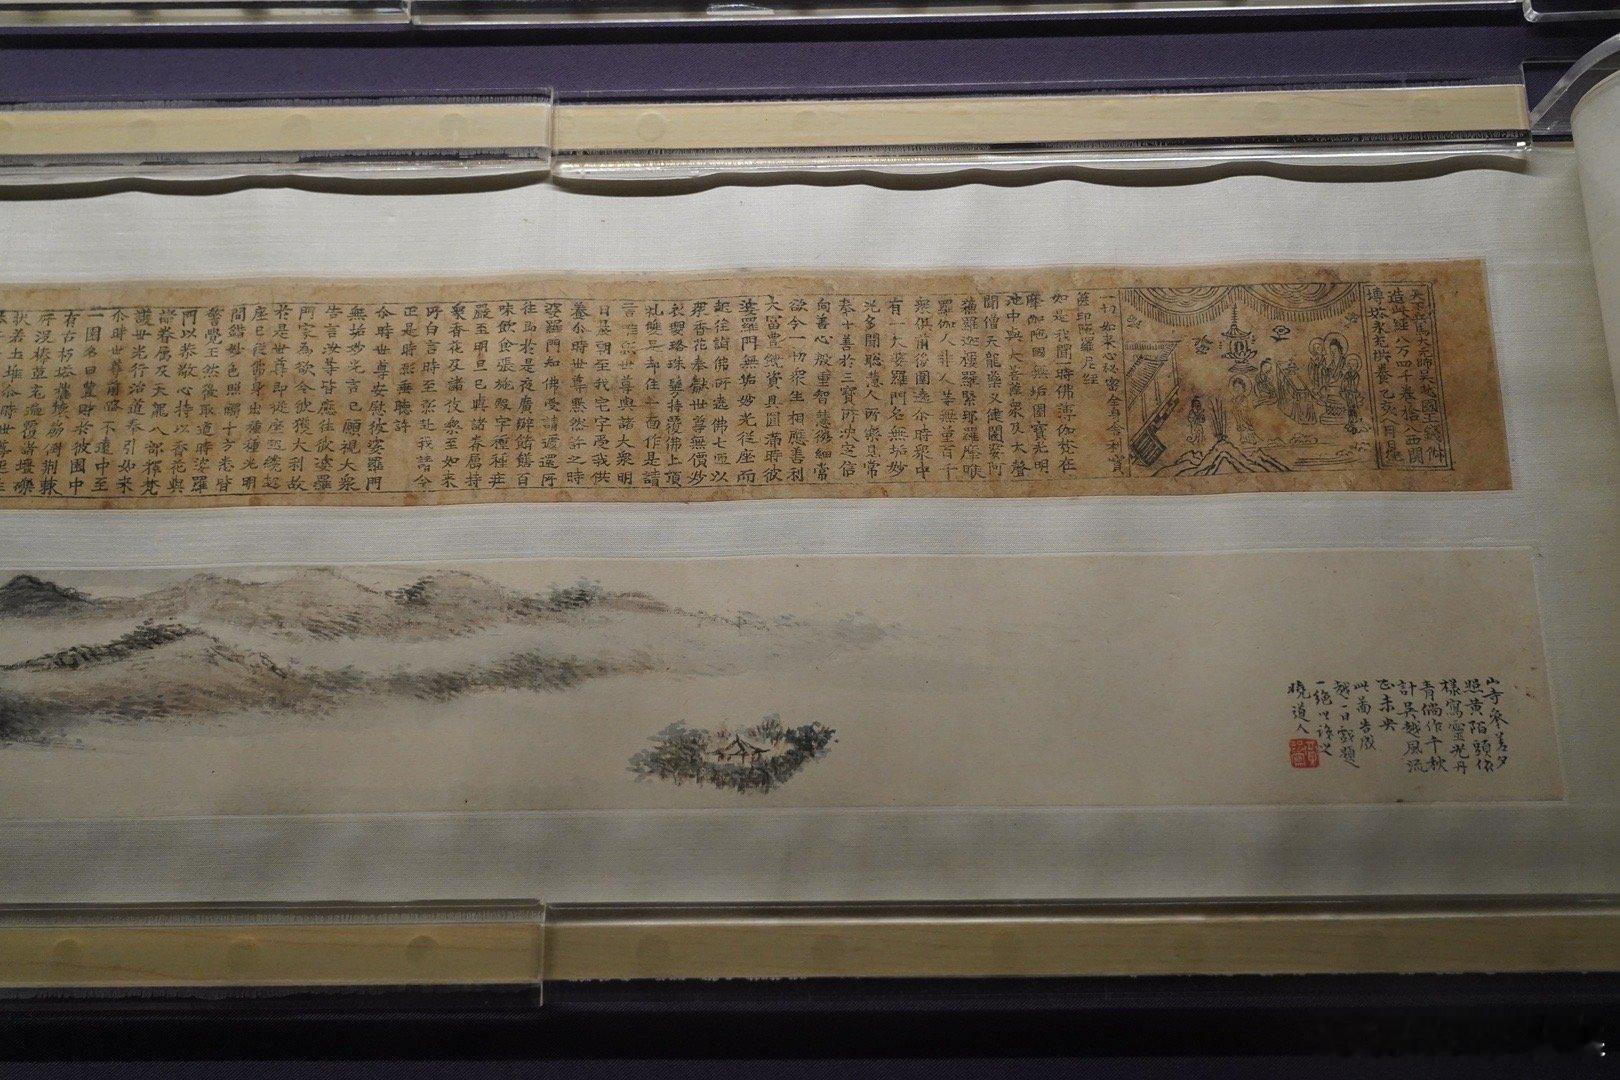 天下兵馬大元帥吳越國王錢俶
造此經八万四千卷捨入西關
塼塔永充供養乙亥八月日紀
一切如來心秘密全身舍利寶
篋印陁羅尼經
如是我聞一時佛在摩伽陁國無垢園寶光明
池中與大菩薩衆及大聲
聞僧天龍藥叉健闥婆阿
蘓羅迦樓羅緊那羅摩睺
羅伽人非人等無量百千
衆俱前後圍遶尒時衆中
有一大婆羅門名無垢妙
光多聞聰慧人所樂見常
奉十善於三寶所决定信
向善心殷重智慧微細常
欲令一切衆生相應善利
大富豊饒資具圓滿時彼
婆羅門無垢妙光從座而
起往詣佛所遶佛七匝以
衆香花奉獻世尊無價妙
衣瓔珞珠鬘持覆佛上頂
礼雙足却住一面作是請
言唯願世尊與諸大衆明
日晨朝至我宅中受我供
養尒時世尊默然許之時
婆羅門知佛受請遽還所
住即於是夜廣辦餚饍百
味飲食張施殿宇種種庄
嚴至明旦已與諸眷属持
衆香花及諸伎樂至如來
所白言時至願赴我請今
正是時願垂聽許
尒時世尊安慰彼婆羅門
無垢妙光言已顧視大衆
告言汝等皆應往彼婆羅
門家為欲令彼獲大利故
於是世尊即從座起纔起
座已從佛身出種種光明
間錯妙色照觸十方悉皆
警覺已然後取道時婆羅
門以恭敬心持以香花與
諸眷属及天龍八部釋梵
護世先行治道奉引如來
尒時世尊前路不遠中至
一園名曰豊財於彼園中
有古朽塔摧壊崩倒荆棘
所没榛草充遍覆諸礓礫
狀若土堆尒時世尊至往
山寺參差夕
照黄陌頭依
樣寫靈光丹
青倘作千秋
計吳越風流
正未央
此畵告成
越一日戲題
一絶以詠之
曉道人